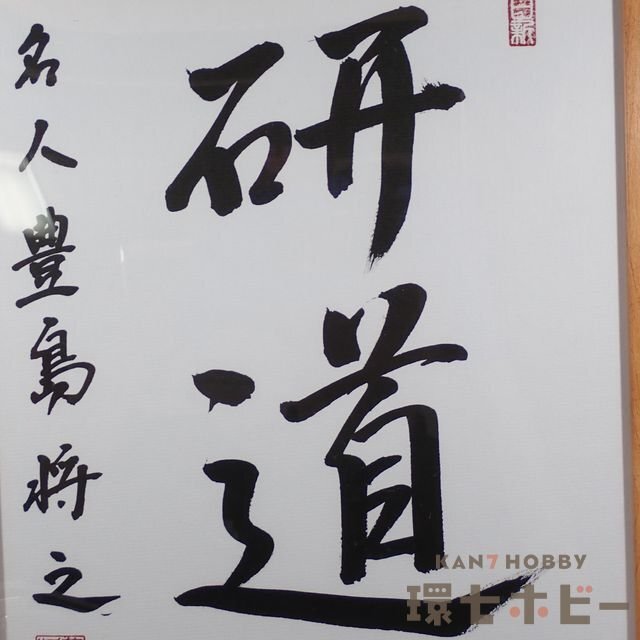 研道
名人豊島将之
KAN7HOBBY
環七ホビー